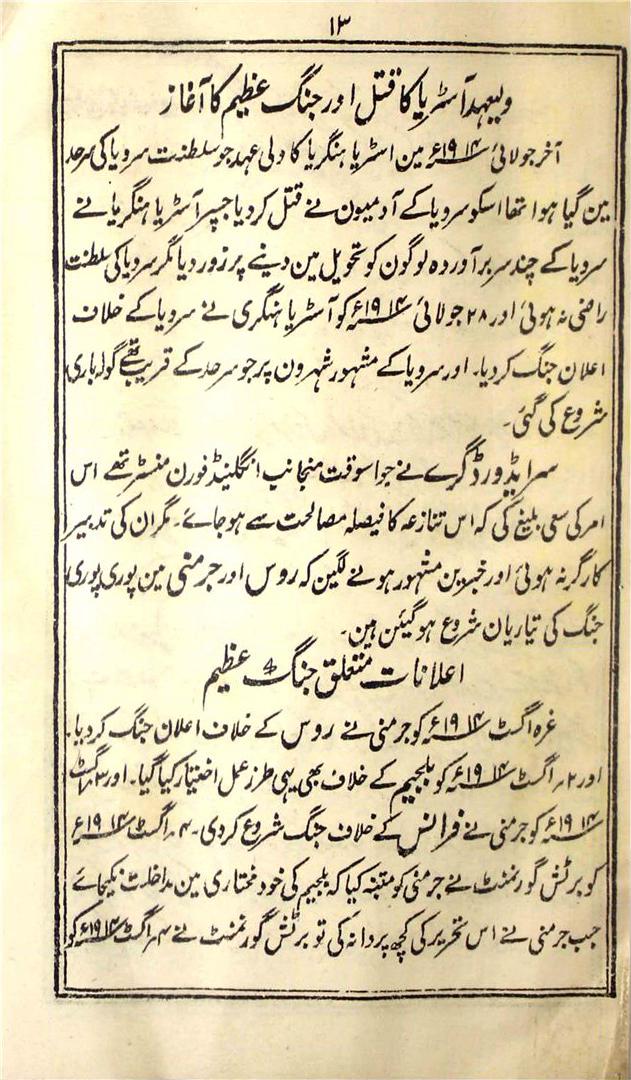 ۱۳
ولیعہد آسٹریا کا قتل اور جنگ عظیم کا آغاز
آخر جولائی ۱۹۱۴ء مین اسٹریا ہنگریا کا ولی عہد جو سلطنت سرویا کی سرحد
مین گیا ہوا تھا اسکو سرویا کے آدمیون نے قتل کر دیا جسپر آسٹریا ہنگریا نے
سرویا کے چند سربر آوردہ لوگون کو تحویل مین دینے پر زور دیا مگر سرویا کی سلطنت
راضی نہ ہوئی اور ۲۸ جولائی ۱۹۱۴ء کو آسٹریا ہنگری نے سرویا کے خلاف
اعلان جنگ کر دیا۔ اور سرویا کے مشہور شہرون پر جو سرحد کے قریب تھے گولہ باری
شروع کی گئی۔
سر ایڈورڈ گرے نے جو اسوقت منجانب انگلینڈ فورن منسٹر تھے اس
امر کی سعی بلیغ کی کہ اس تنازعہ کا فیصلہ مصالحت سے ہو جائے۔ مگر ان کی تدبیر
کارگر نہ ہوئی اور خبرین مشہور ہونے لگین کہ روس اور جرمنی مین پوری پوری
جنگ کی تیاریان شروع ہو گیئن ہین۔
اعلانات متعلق جنگ عظیم
غرہ اگست ۱۹۱۴ء کو جرمنی نے روس کے خلاف اعلان جنگ کر دیا۔
اور ۲؍ اگست ۱۹۱۴ء کو بلجیم کے خلاف بھی یہی طرز عمل اختیار کیا گیا۔ اور ۳؍ اگست
۱۹۱۴ء کو جرمنی نے فرانس کے خلاف جنگ شروع کر دی۔ ۴؍ اگست ۱۹۱۴ء
کو برٹش گورنمنٹ نے جرمنی کو متنبہ کیا کہ بلجیم کی خود مختاری مین مداخلت نکیجائے
جب جرمنی نے اس تحریر کی کچھ پروا نہ کی تو برٹش گورنمنٹ نے ۴؍ اگست ۱۹۱۴ء کو